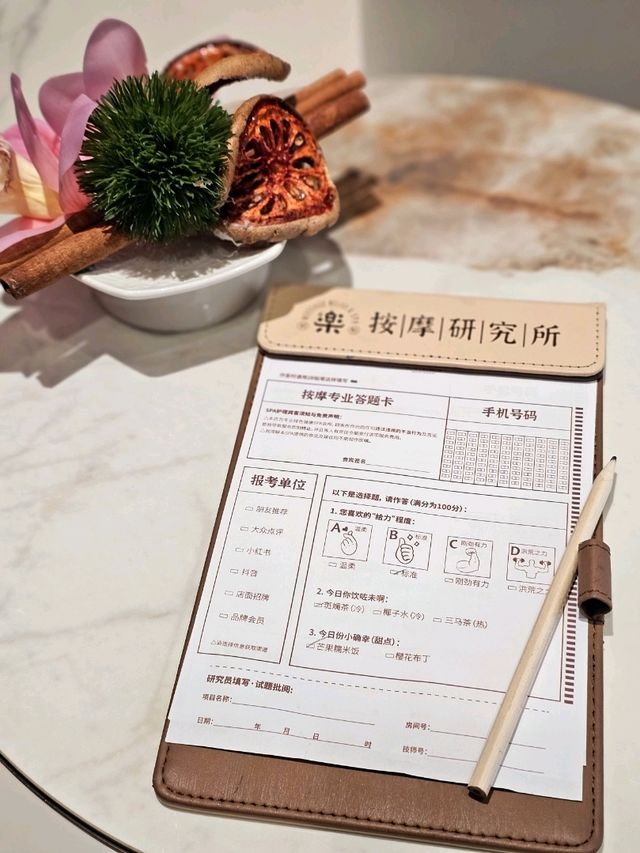 楽 按|摩|研|究|所
按摩专业答题卡
手机号码
SPA护理宾客须知与免责声明:
宾客签名
报考单位
朋友推荐
大众点评
小红书
抖音
店面招牌
品牌会员
以下是选择题, 请作答 (满分为100分):
1. 您喜欢的“给力”程度:
A 温柔
B 标准
C 刚劲有力
D 洪荒之力
温柔
标准
刚劲有力
洪荒之
2. 今日你饮咗未啊:
斑斓茶(冷) 椰子水(冷) 三马茶(热)
3. 今日份小确幸 (甜点):
芒果糯米饭 樱花布丁
研究员填写·试题批阅:
项目名称:
房间号:
日期: 年 月 日 时
技师号: